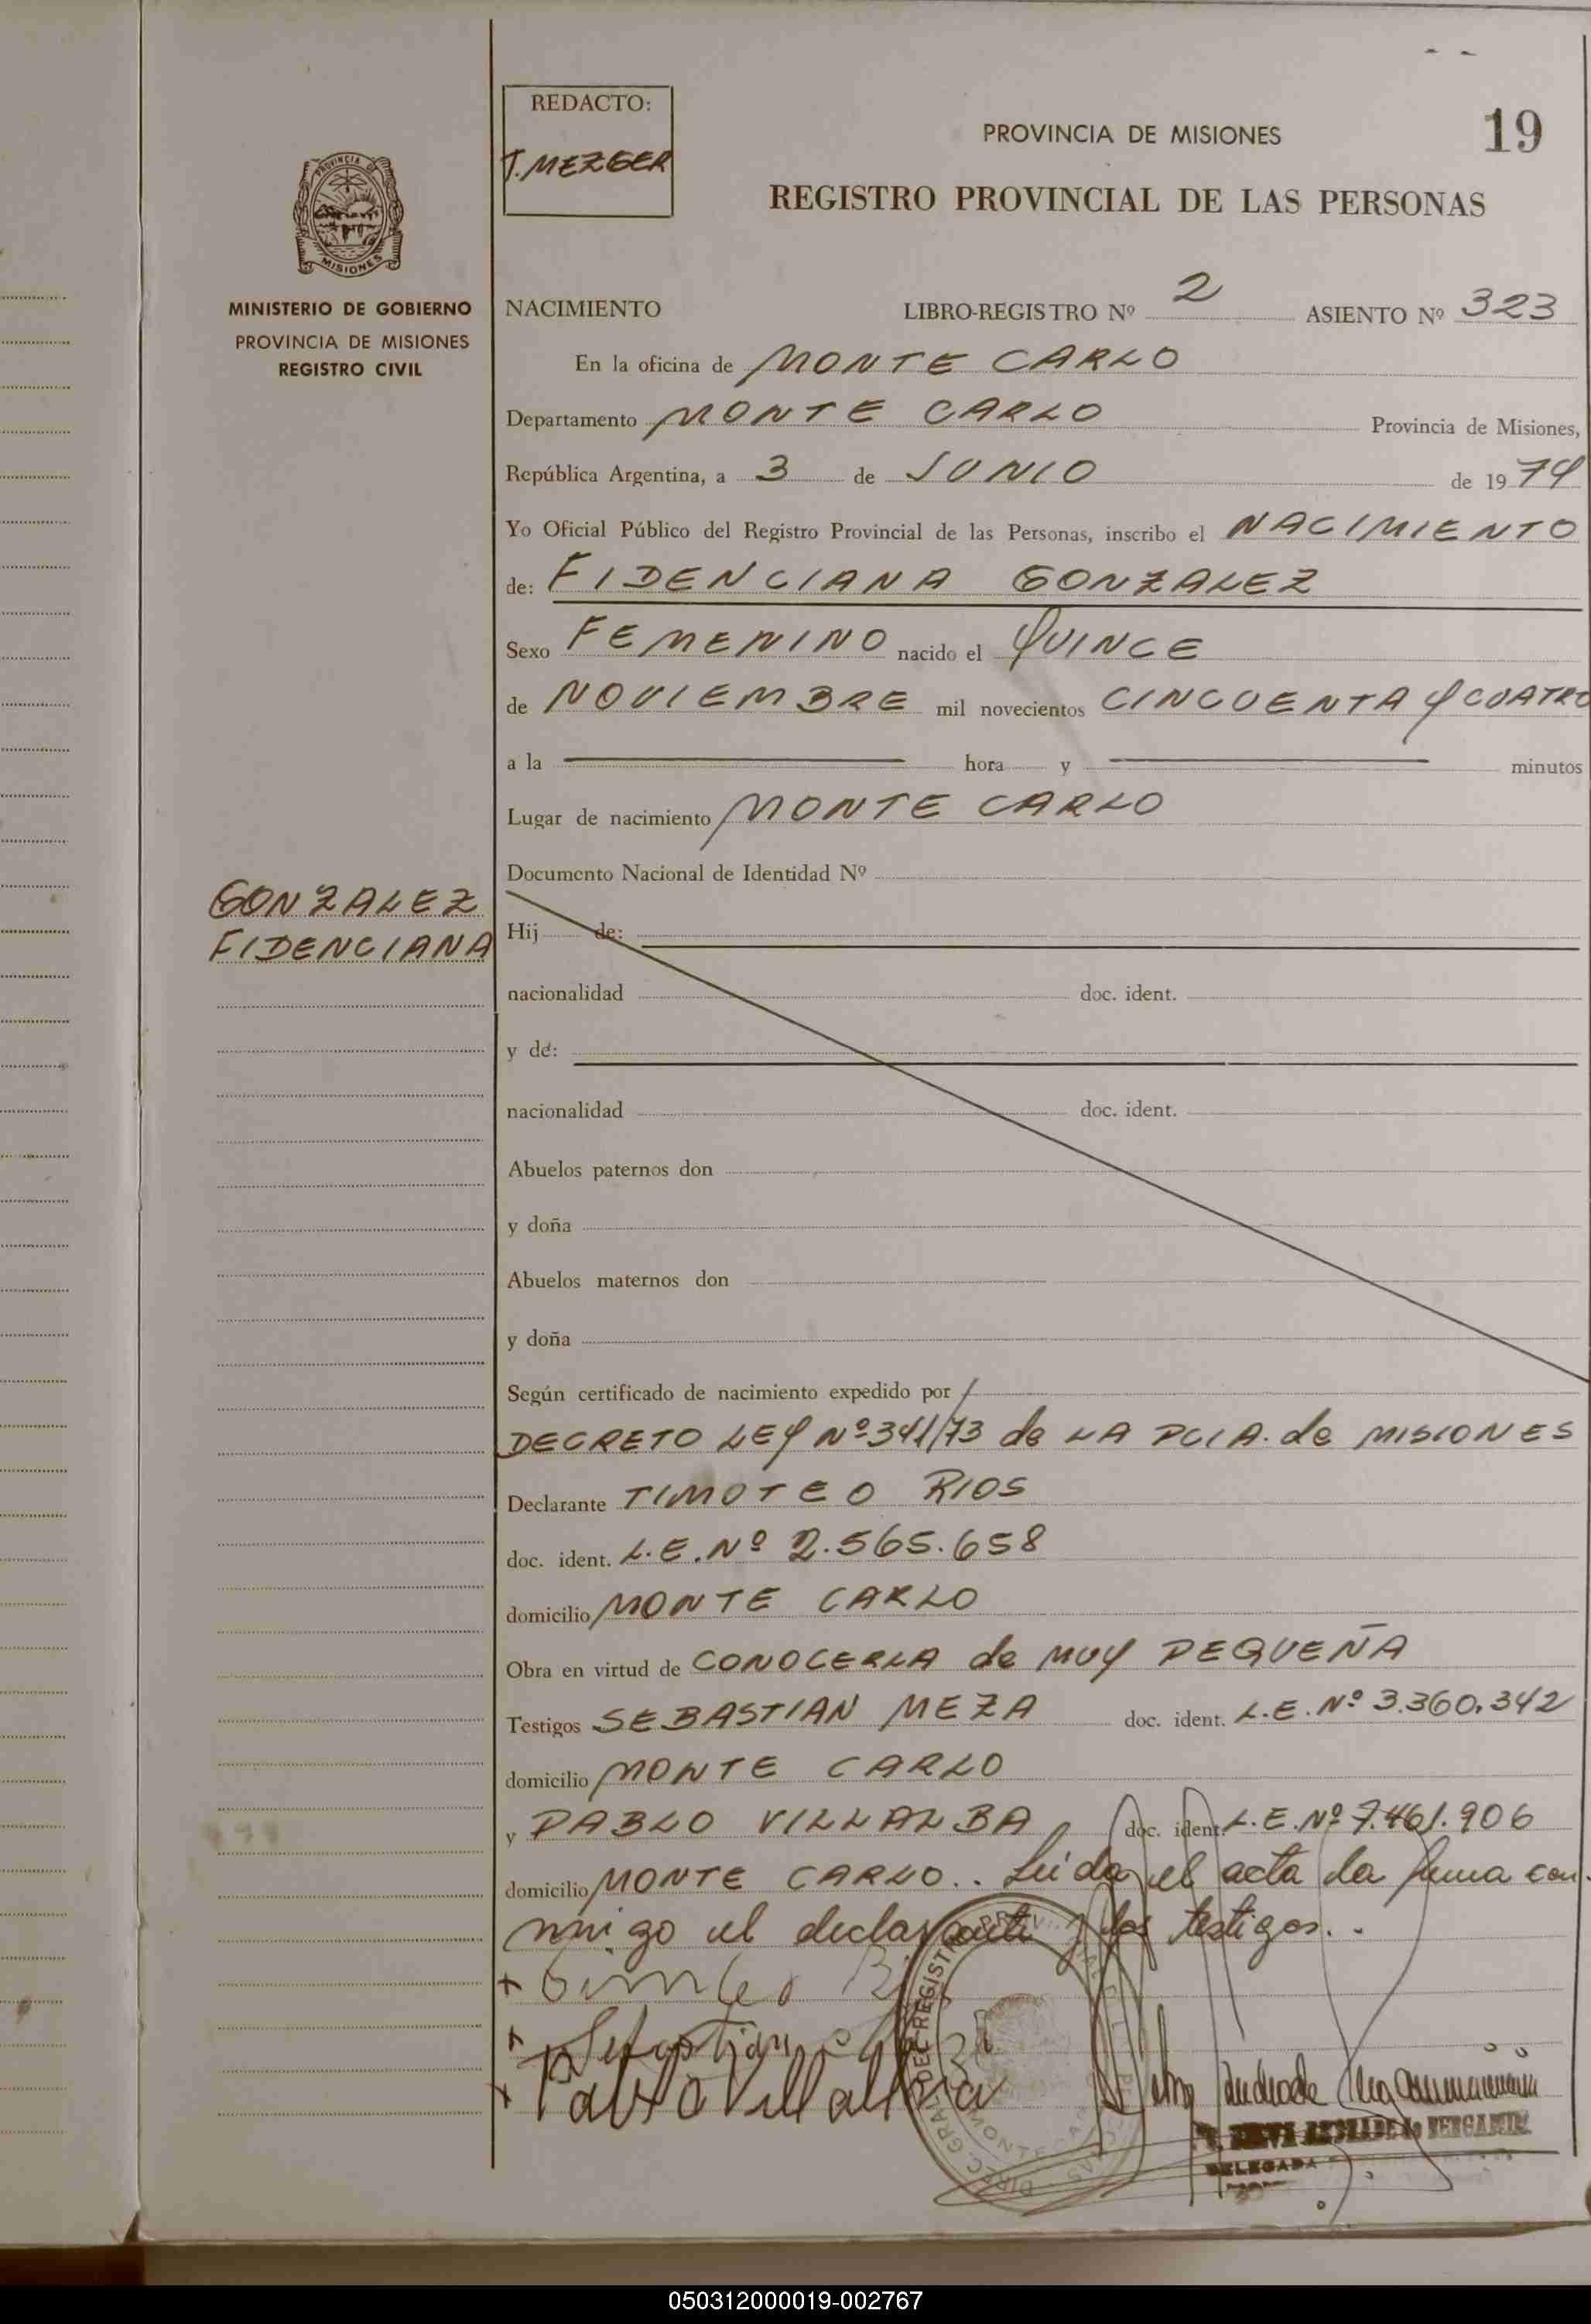 REDACTO:
J. MEZGER
PROVINCIA DE MISIONES
19
REGISTRO PROVINCIAL DE LAS PERSONAS
PROVINCIA DE
MISIONES
MINISTERIO DE GOBIERNO
PROVINCIA DE MISIONES
REGISTRO CIVIL
NACIMIENTO LIBRO-REGISTRO Nº 2 ASIENTO Nº 323
En la oficina de MONTE CARLO
Departamento MONTE CARLO Provincia de Misiones,
República Argentina, a 3 de JUNIO de 1974
Yo Oficial Público del Registro Provincial de las Personas, inscribo el NACIMIENTO
de: FIDENCIANA GONZALEZ
Sexo FEMENINO nacido el QUINCE
de NOVIEMBRE mil novecientos CINCUENTA Y CUATRO
a la hora y minutos
Lugar de nacimiento MONTE CARLO
Documento Nacional de Identidad Nº
GONZALEZ
FIDENCIANA
Hij de:
nacionalidad doc. ident.
y de:
nacionalidad doc. ident.
Abuelos paternos don
y doña
Abuelos maternos don
y doña
Según certificado de nacimiento expedido por
DECRETO LEY Nº 341/73 de LA PCIA. de MISIONES
Declarante TIMOTEO RIOS
doc. ident. L.E. Nº 2.565.658
domicilio MONTE CARLO
Obra en virtud de CONOCERLA de MUY PEQUEÑA
Testigos SEBASTIAN MEZA doc. ident. L.E. Nº 3.360.342
domicilio MONTE CARLO
y PABLO VILLALBA doc. ident. L.E. Nº 7.461.906
domicilio MONTE CARLO.. Leida el acta la firma con
migo el declarante y los testigos..
Pablo Villalba
DELEGADA
050312000019-002767